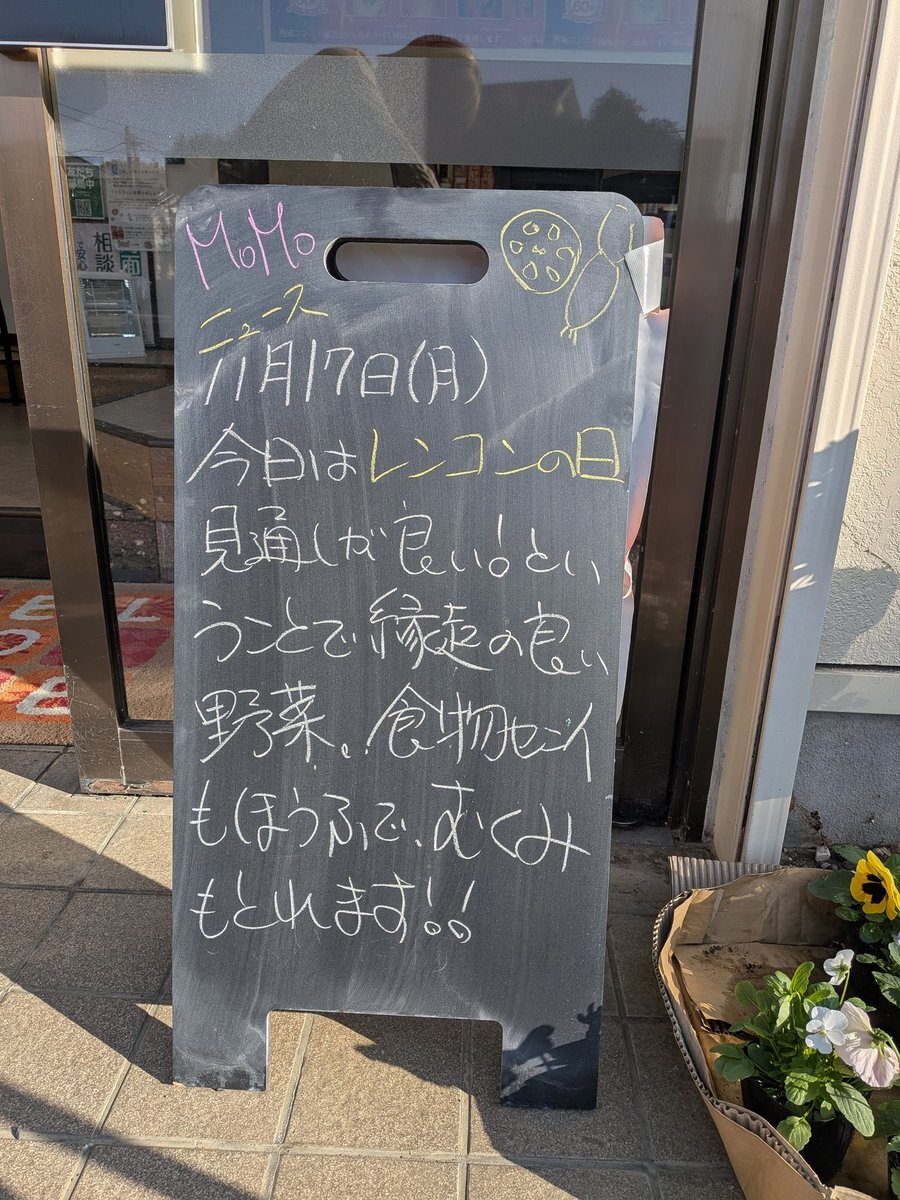 MoMo
ニュース
11月17日(月)
今日はレンコンの日
見通しが良い!とい
うことで縁起の良い
野菜。食物センイ
もほうふで、むくみ
もとれます!!
友だち
募集中
相談